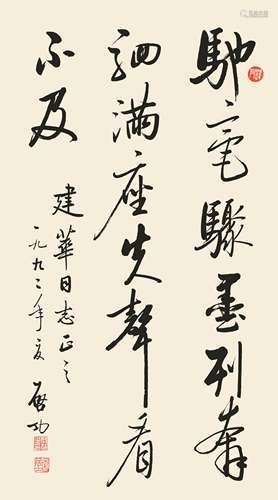 馳毫驟墨列奔
駟滿座失聲看
不及
建華同志正之
一九九二年夏 启功